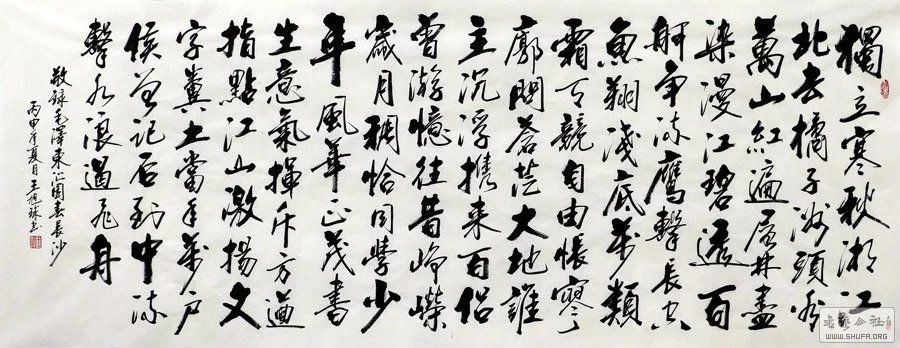 獨立寒秋湘江
北去橘子洲頭看
萬山紅遍層林盡
染漫江碧透百
舸爭流鷹擊長空
魚翔淺底萬類
霜天競自由悵寥
廓問蒼茫大地誰
主沉浮携來百侶
曾游憶往昔崢嶸
歲月稠恰同學少
年風華正茂書
生意氣揮斥方遒
指點江山激揚文
字糞土當年萬户
侯曾記否到中流
擊水浪遏飛舟
敬録毛澤東沁園春長沙
丙申年夏月王旭球書
WWW.SHUFA.ORG